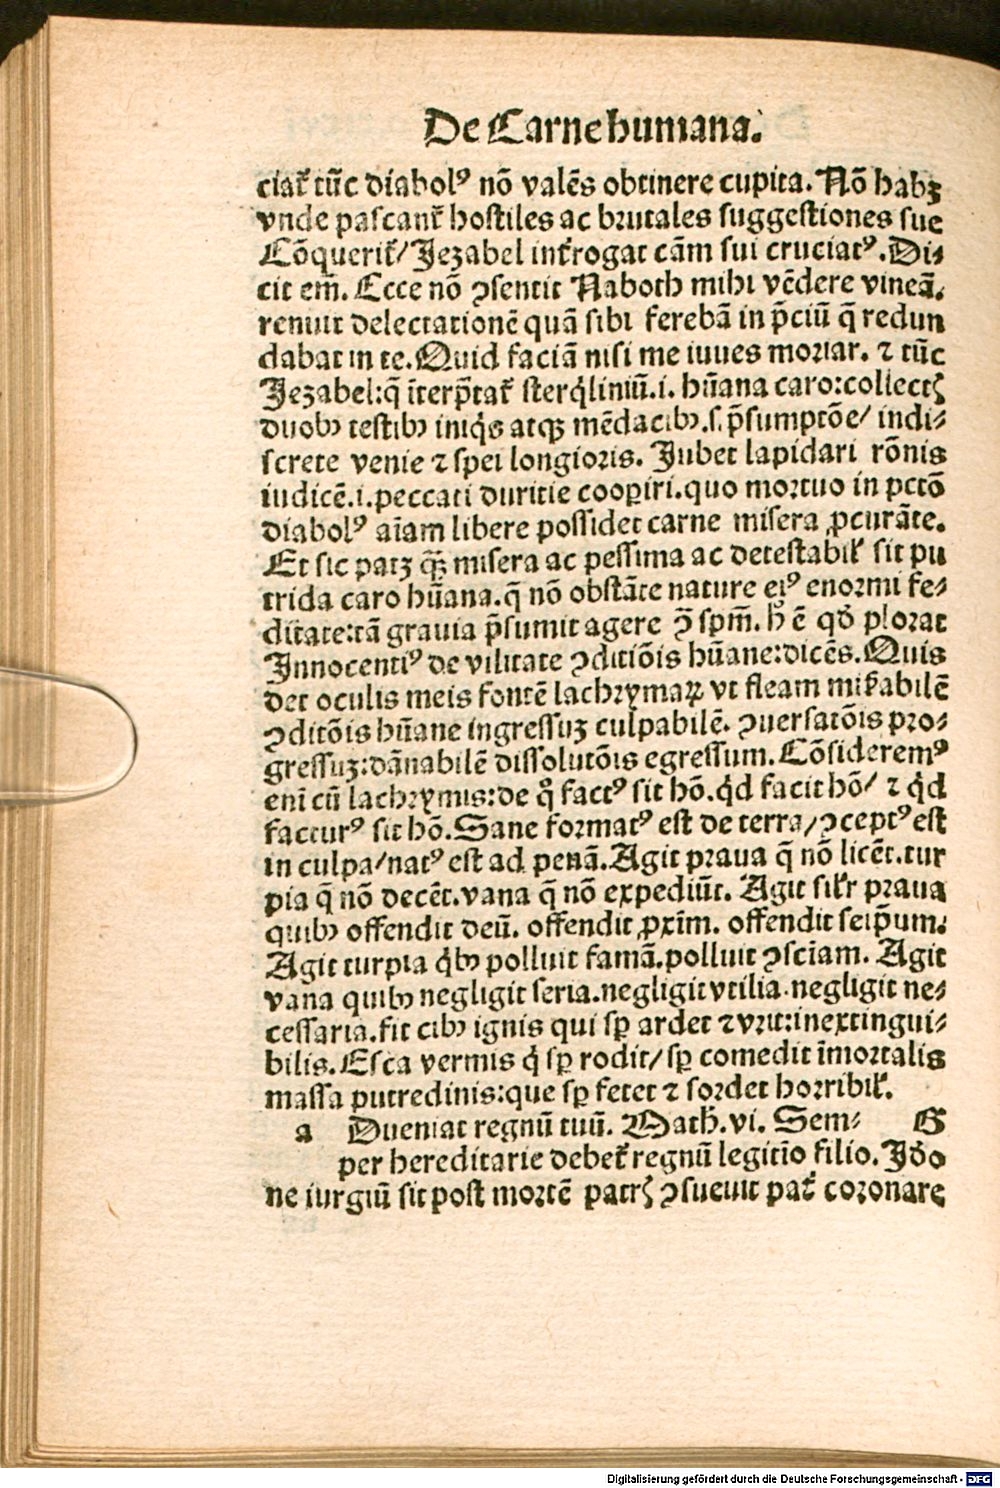 De Carne humana.
ciat᷑ tūc diabolꝰ nō valēs obtinere cupita. Nō habꝫ
vnde pascant᷑ hostiles ac brutales suggestiones sue
Cōquerit᷑/ Jezabel int᷑rogat cām sui cruciatꝰ. Di⸗
cit em̄. Ecce nō ꝯsentit Naboth mihi vēdere vineā.
renuit delectationē quā sibi ferebā in p̄ciū q̄ redun
dabat in te. Quid faciā nisi me iuues moriar. ⁊ tūc
Jezabel: q̄ īterp̄tat᷑ sterq̇liniū .i. hūana caro: collectꝭ
duobꝰ testibꝰ iniq̇s atqꝫ mēdacibꝰ .s. p̄sumptōe/ indi⸗
screte venie ⁊ spei longioris. Jubet lapidari rōnis
iudicē .i. peccati duritie cooꝑiri. quo mortuo in pctō
diabolꝰ aīam libere possidet carne misera ꝓcurāte.
Et sic patꝫ qꝫ̄ misera ac pessima ac detestabil᷑ sit pu
trida caro hūana. q̄ nō obstāte nature eiꝰ enormi fe⸗
ditate: tā grauia p̄sumit agere ꝯ spm̄. h̄ ē qđ plorat
Innocentiꝰ de vilitate ꝯditiōis hūane: dicēs. Quis
det oculis meis fontē lachrymaꝝ vt fleam mi᷑abilē
ꝯditōis hūane ingressuꝫ culpabilē. ꝯuersatōis pro⸗
gressuꝫ: dānabilē dissolutōis egressum. Cōsideremꝰ
eni cū lachrymis: de q̊ factꝰ sit hō. q̇d facit hō/ ⁊ q̇d
facturꝰ sit hō. Sane formatꝰ est de terra/ ꝯceptꝰ est
in culpa/ natꝰ est ad penā. Agit praua q̄ nō licēt. tur
pia q̄ nō decēt. vana q̄ nō expediūt. Agit sil᷑r praua
quibꝰ offendit deū. offendit ꝓxīm. offendit seip̄um.
Agit turpia q̇bꝰ polluit famā. polluit ꝯsciam. Agit
vana quibꝰ negligit seria. negligit vtilia. negligit ne⸗
cessaria. fit cibꝰ ignis qui sꝑ ardet ⁊ vrit: inextingui⸗
bilis. Esca vermis q̇ sꝑ rodit/ sꝑ comedit īmortalis
massa putredinis: que sꝑ fetet ⁊ sordet horribil᷑.
a Dueniat regnū tuū. Math. vi. Sem⸗ G
per hereditarie debet᷑ regnū legitīo filio. Jđo
ne iurgiū sit post mortē patrꝭ ꝯsueuit pat᷑ coronare
Digitalisierung gefördert durch die Deutsche Forschungsgemeinschaft - DFG